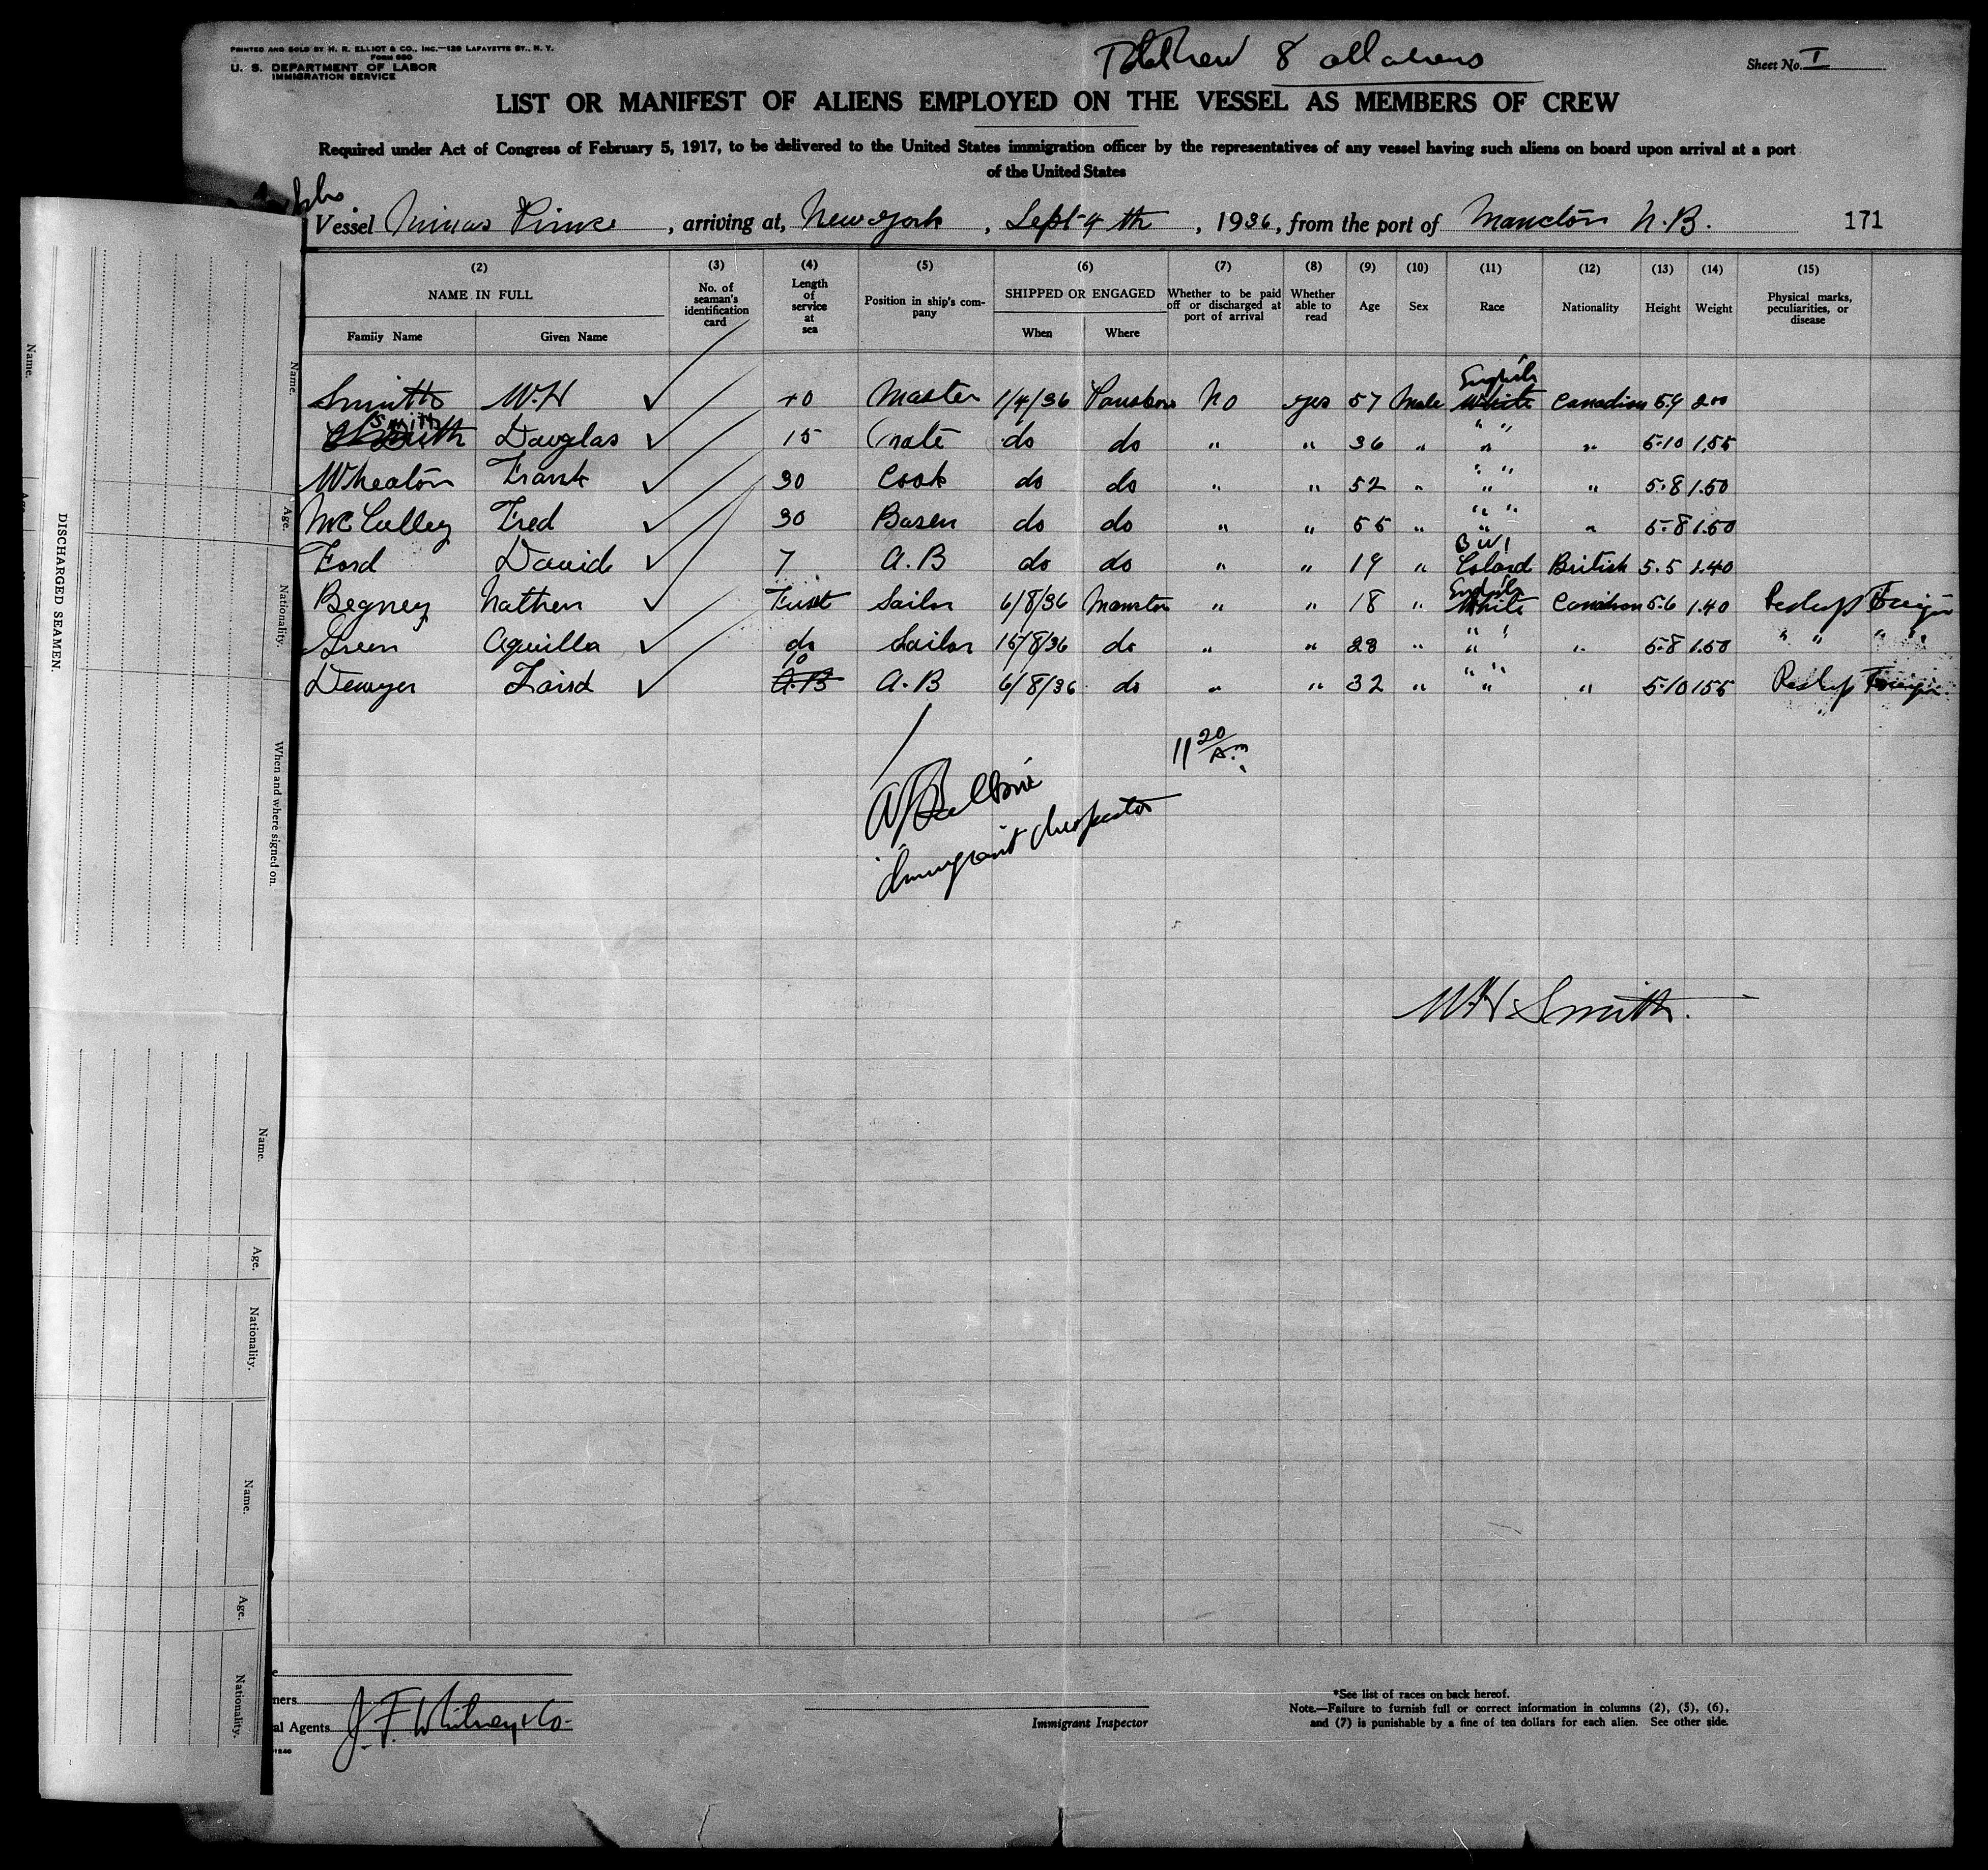 PRINTED AND SOLD BY H. R. ELLIOT & CO., INC.—129 LAFAYETTE ST., N. Y.
FORM 680
U. S. DEPARTMENT OF LABOR
IMMIGRATION SERVICE
Total Crew 8 all aliens
Sheet No. I
LIST OR MANIFEST OF ALIENS EMPLOYED ON THE VESSEL AS MEMBERS OF CREW
Required under Act of Congress of February 5, 1917, to be delivered to the United States immigration officer by the representatives of any vessel having such aliens on board upon arrival at a port
of the United States
Vessel Minas Prince, arriving at, New York, Sept 4th, 1936, from the port of Moncton N.B. 171
(2) (3) (4) (5) (6) (7) (8) (9) (10) (11) (12) (13) (14) (15)
NAME IN FULL
Family Name Given Name
No. of seaman's identification card
Length of service at sea
Position in ship's company
SHIPPED OR ENGAGED
When Where
Whether to be paid off or discharged at port of arrival
Whether able to read
Age
Sex
Race
Nationality
Height
Weight
Physical marks, peculiarities, or disease
English
Smith W.H ✓ 40 Master 1/4/36 No yes 57 Male White Canadian 5.9 200
Smith Douglas ✓ 15 Mate do do " " 36 " " " 5.10 1.55
Wheaton Frank ✓ 30 Cook do do " " 52 " " " 5.8 1.50
McCulley Fred ✓ 30 Bosen do do " " 55 " " " 5.8 1.50
B W I
Ford David ✓ 7 A.B do do " " 19 " Colord British 5.5 1.40
English
Begney Nathen ✓ First Sailor 6/8/36 Moncton " " 18 " White Canadian 5.6 1.40
Green Aquilla ✓ do Sailor 15/8/36 do " " 28 " " " 5.8 1.50 " " " "
10
Laird ✓ A.B A.B 6/8/36 do " " 32 " " " 5.10 155
11 20/A.m
Immigrant Inspector
W.H Smith.
al Agents J. F. Whitney & Co.
Immigrant Inspector
*See list of races on back hereof.
Note.—Failure to furnish full or correct information in columns (2), (5), (6),
and (7) is punishable by a fine of ten dollars for each alien. See other side.
DISCHARGED SEAMEN.
Name.
Age.
Nationality.
When and where signed on.
Name.
Age.
Nationality.
Name.
Age.
Nationality.
Name.